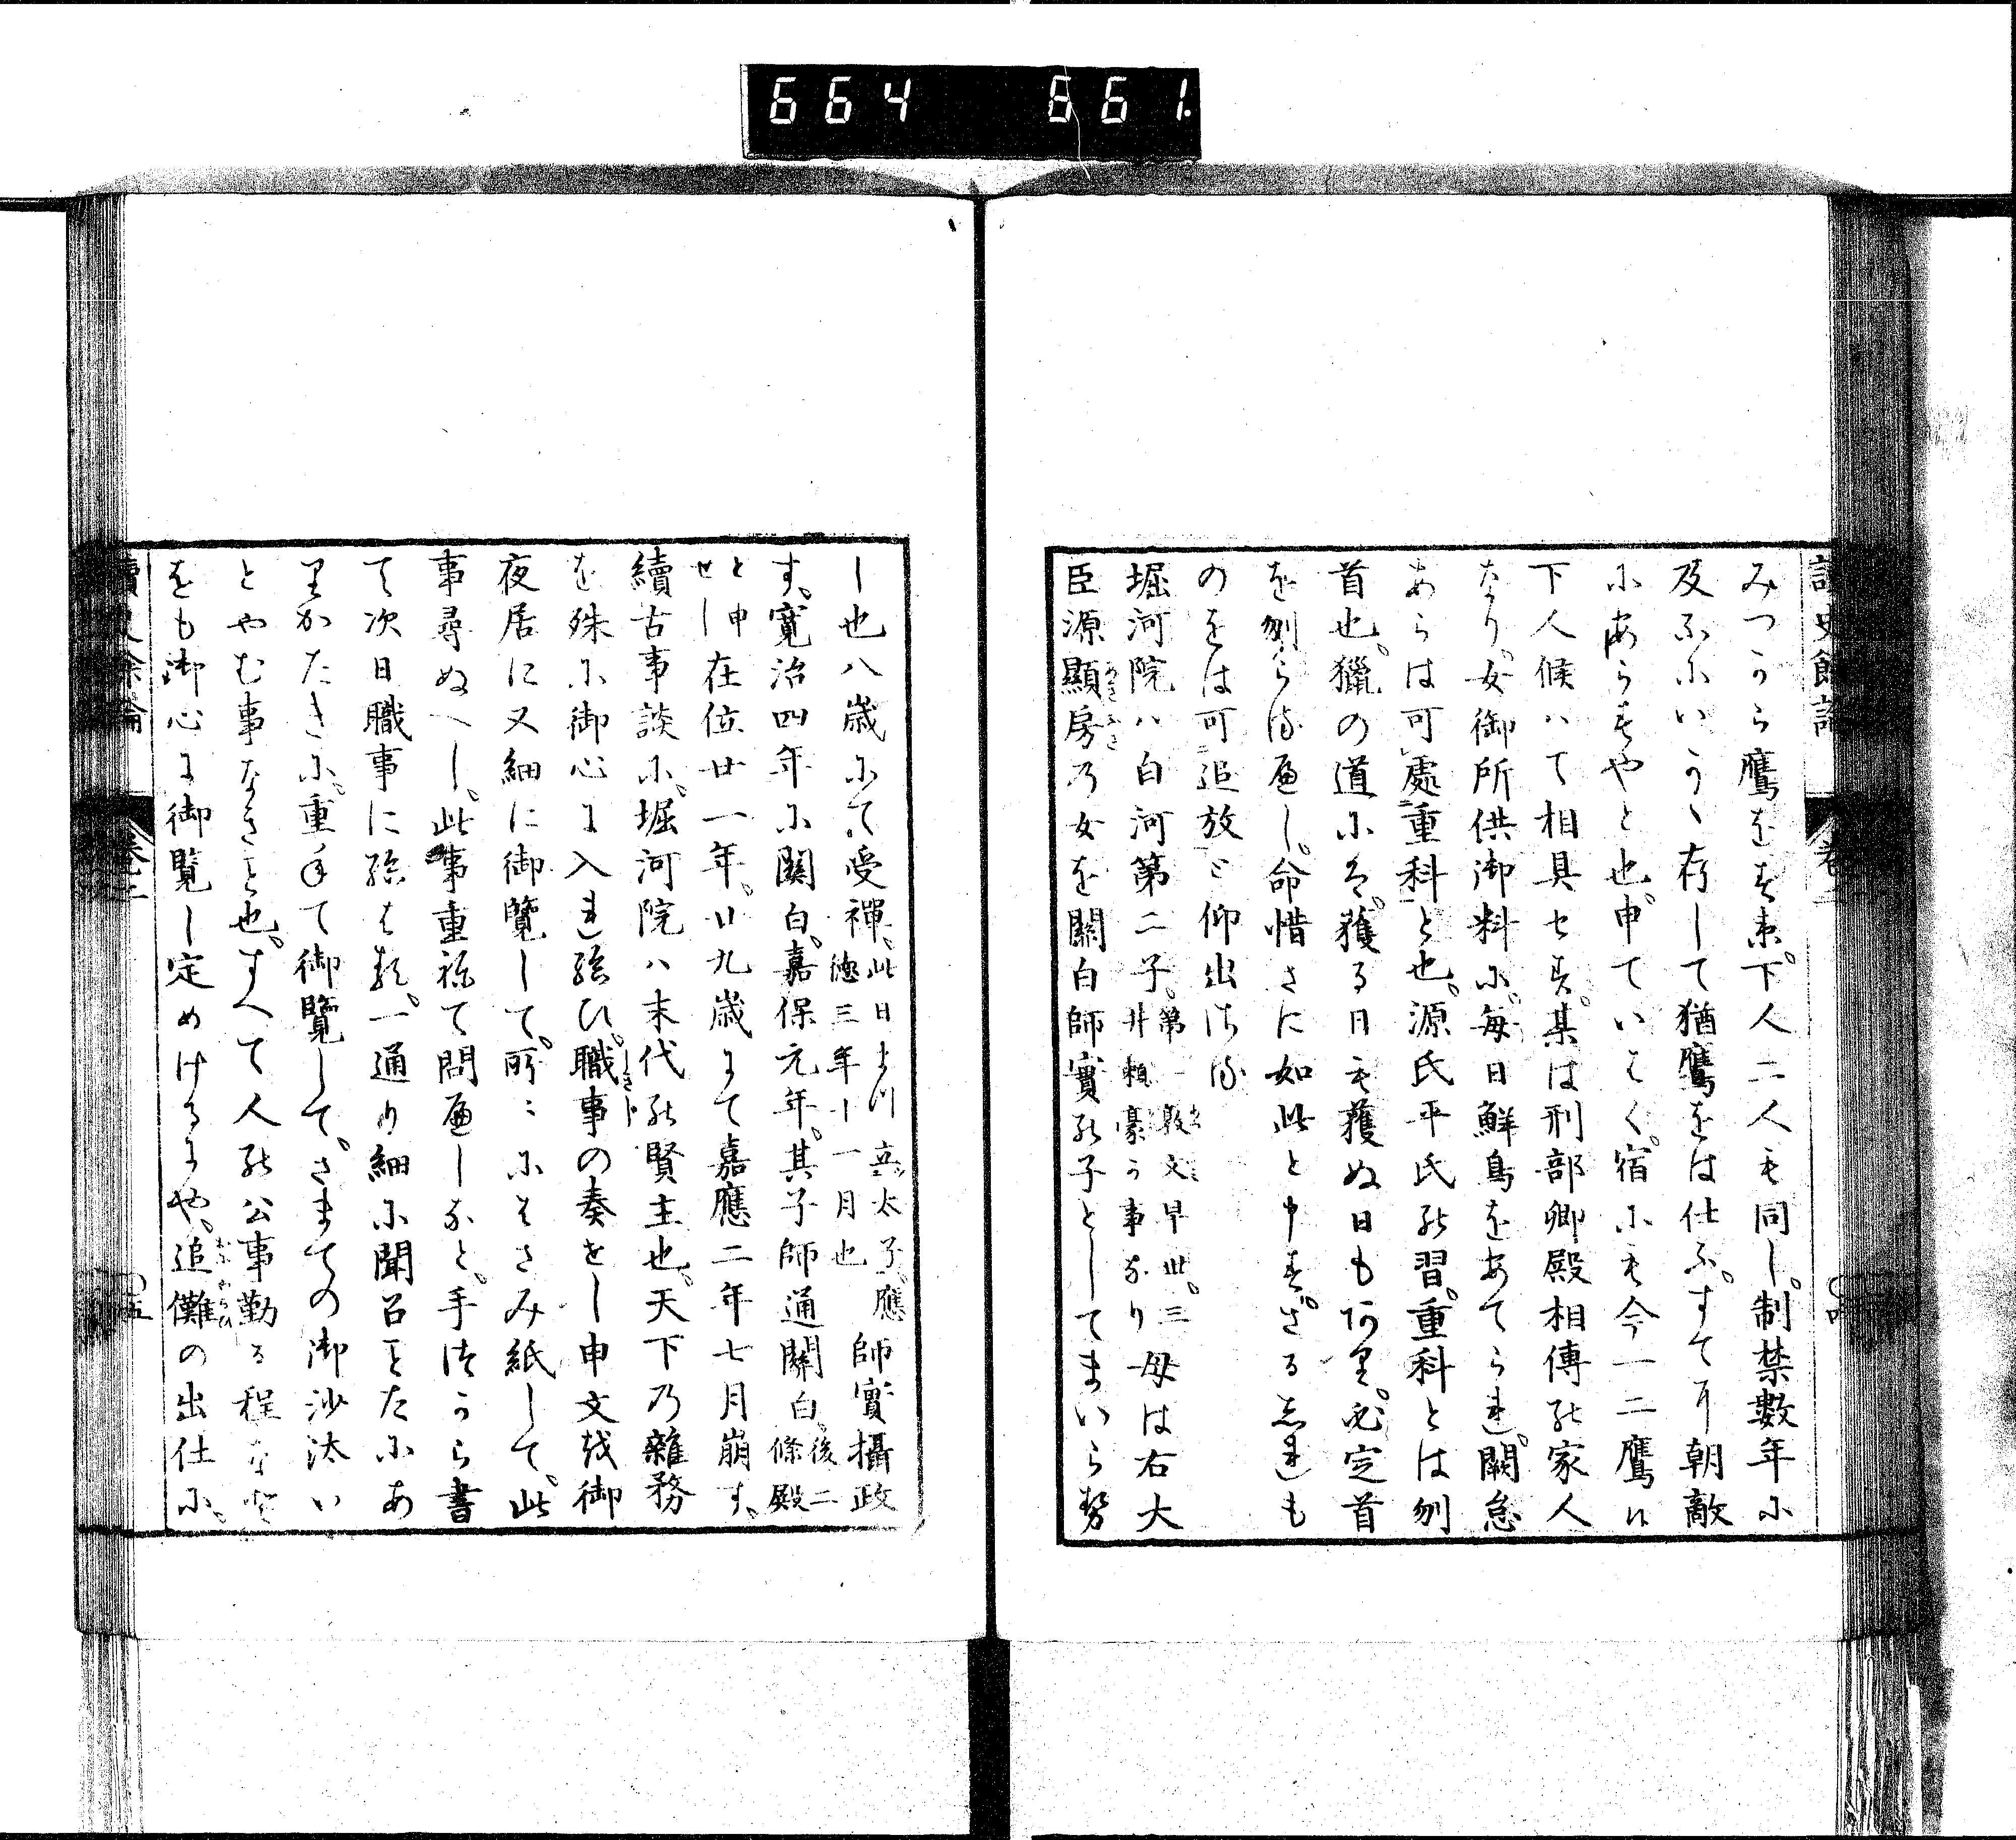 664 661
讀史餘論 卷二
みつから鷹をすゑ下人二人も同し制禁數年に
及ふにいかゝ存して猶鷹をは仕ふすてに朝敵
にあらすやと也申ていはく宿にも今一二鷹は
下人候はて相具せす某は刑部卿殿相傳の家人
なり女御所供御料に毎日鮮鳥をあてられ闕怠
あらは可處重科と也源氏平氏の習重科とは刎
首也獵の道には獲る日も獲ぬ日もあり必定首
を刎らるへし命惜さに如此と申すさるゑれも
のをは可追放と仰出さる
堀河院ハ白河第二子第一敦文早世三井頼豪か事あり母は右大
臣源顯房の女を關白師實の子としてまいらせ
し也八歳にて受禪此日より立太子應德三年十一月也師實攝政
す寛治四年に關白嘉保元年其子師通關白後二條殿
と申せし在位廿一年廿九歳にて嘉應二年七月崩す
續古事談に堀河院ハ末代の賢主也天下の雜務
を殊に御心に入れ給ひ職事の奏せし申文を御
夜居に又細に御覽して所々にはさみ紙して此
事尋ぬへし此事重ねて問へしなと手つから書
て次日職事に給はせ一通り細に聞召ことたにあ
りかたきに重ねて御覽してさまての御沙汰い
とやむ事なきこと也すへて人の公事勤る程なと
をも御心に御覽し定めけるにや追儺の出仕に
讀史餘論 卷之二 五